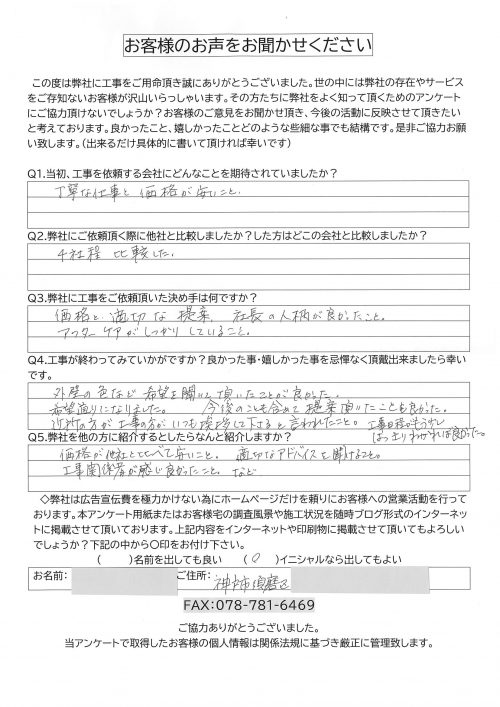 お客様のお声をお聞かせください
この度は弊社に工事をご用命頂き誠にありがとうございました。世の中には弊社の存在やサービス
をご存知ないお客様が沢山いらっしゃいます。その方たちに弊社をよく知って頂くためのアンケート
にご協力頂けないでしょうか？お客様のご意見をお聞かせ頂き、今後の活動に反映させて頂きたい
と考えております。良かったこと、嬉しかったことどのような些細な事でも結構です。是非ご協力お願
い致します。（出来るだけ具体的に書いて頂ければ幸いです）
Q1.当初、工事を依頼する会社にどんなことを期待されていましたか？
丁寧な仕事と価格が安いこと。
Q2.弊社にご依頼頂く際に他社と比較しましたか？した方はどこの会社と比較しましたか？
4社程 比較した。
Q3.弊社に工事をご依頼頂いた決め手は何ですか？
価格と適切な提案、社長の人柄が良かったこと。
アフターケアがしっかりしていること。
Q4.工事が終わってみていかがですか？良かった事・嬉しかった事を忌憚なく頂戴出来ましたら幸い
です。
外壁の色など希望を聞いて頂いたことが良かった。
希望通りになりました。 今後のことも含めて提案頂いたことも良かった。
近所の方が工事の方がいつも挨拶して下さると言われたこと。 工事日程がもう少し
はっきりわかれば良かった。
Q5.弊社を他の方に紹介するとしたらなんと紹介しますか？
価格が他社と比べて安いこと。 適切なアドバイスを聞けること。
工事関係者が感じ良かったこと。など
◇弊社は広告宣伝費を極力かけない為にホームページだけを頼りにお客様への営業活動を行って
おります。本アンケート用紙またはお客様宅の調査風景や施工状況を随時ブログ形式のインターネッ
トに掲載させて頂いております。上記内容をインターネットや印刷物に掲載させて頂いてもよろしい
でしょうか？下記の中から〇印をお付け下さい。
（　　）名前を出しても良い　（〇）イニシャルなら出してもよい
お名前： ご住所： 神戸市須磨区
FAX：078-781-6469
ご協力ありがとうございました。
当アンケートで取得したお客様の個人情報は関係法規に基づき厳正に管理致します。